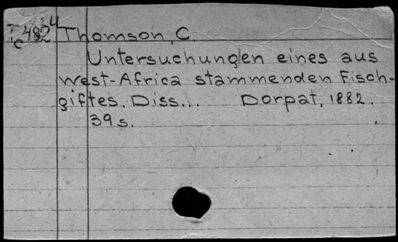 482 Thomson, C.
Untersuchungen eines aus
West-Africa stammenden Fisch-
giftes. Diss... Dorpat, 1882.
39 s.